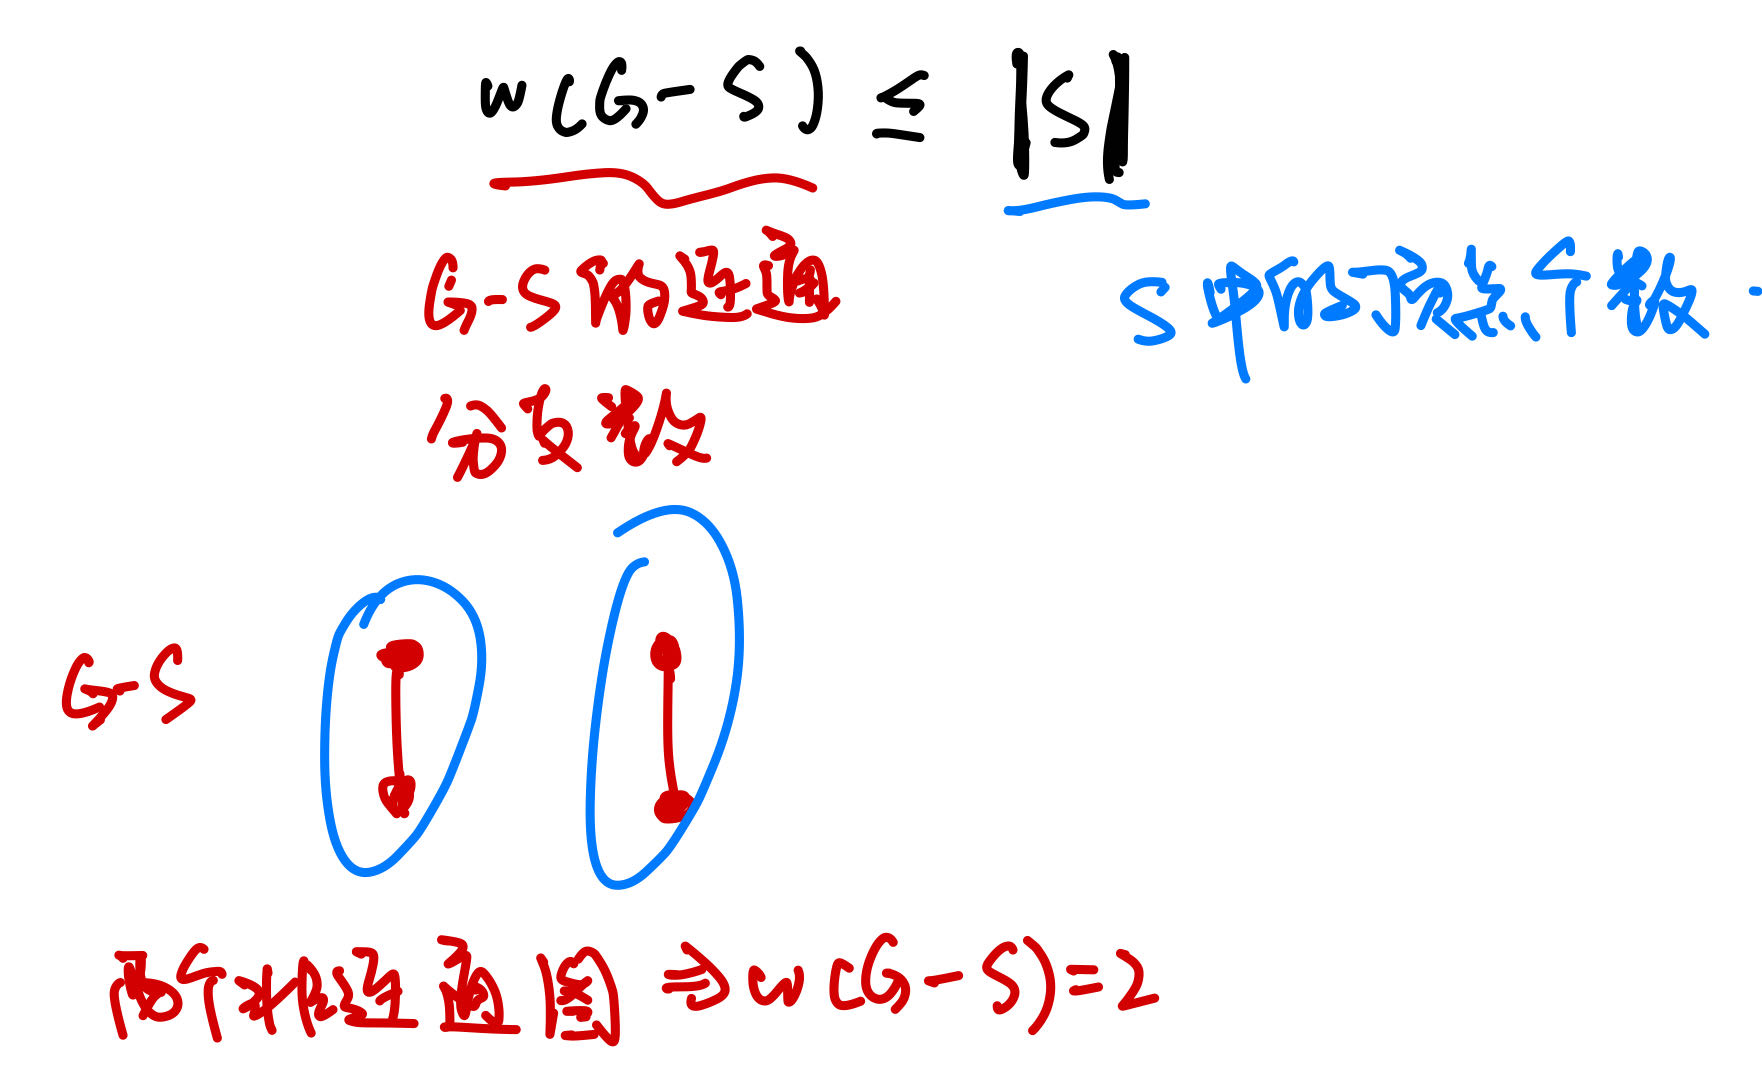 w(G-S) ≤ |S|
G-S的连通
分支数
S中的顶点个数.
G-S
两个非连通图 ⇒ w(G-S)=2